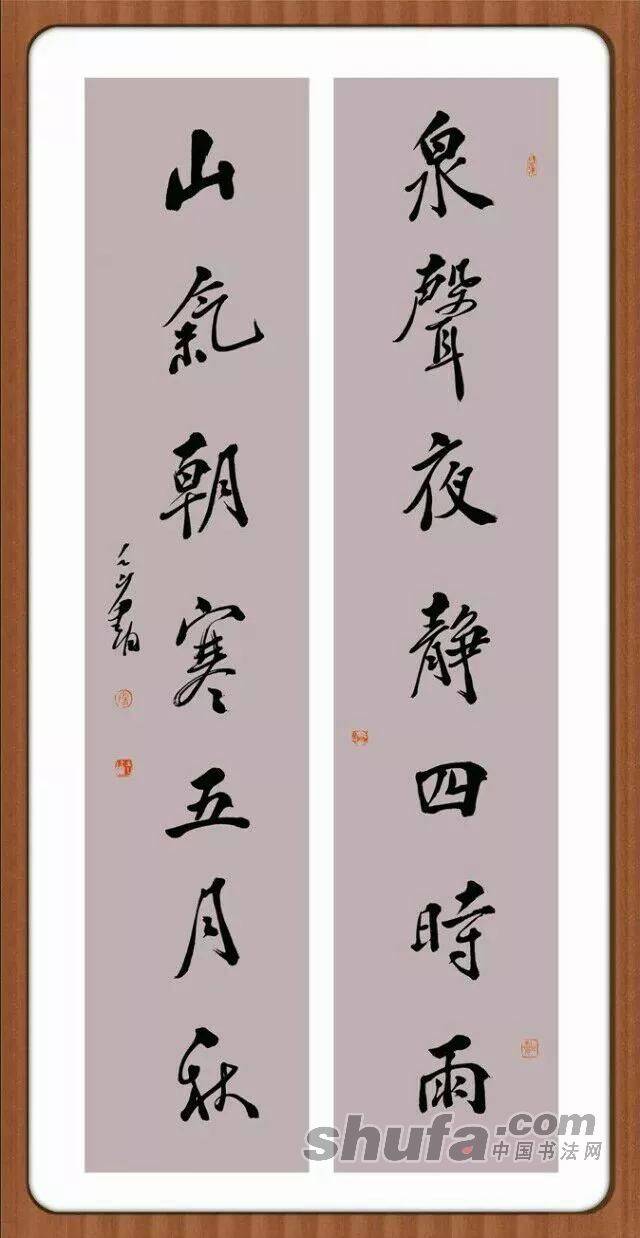 泉聲夜静四時雨
山氣朝寒五月秋
shufa.com
中国书法网